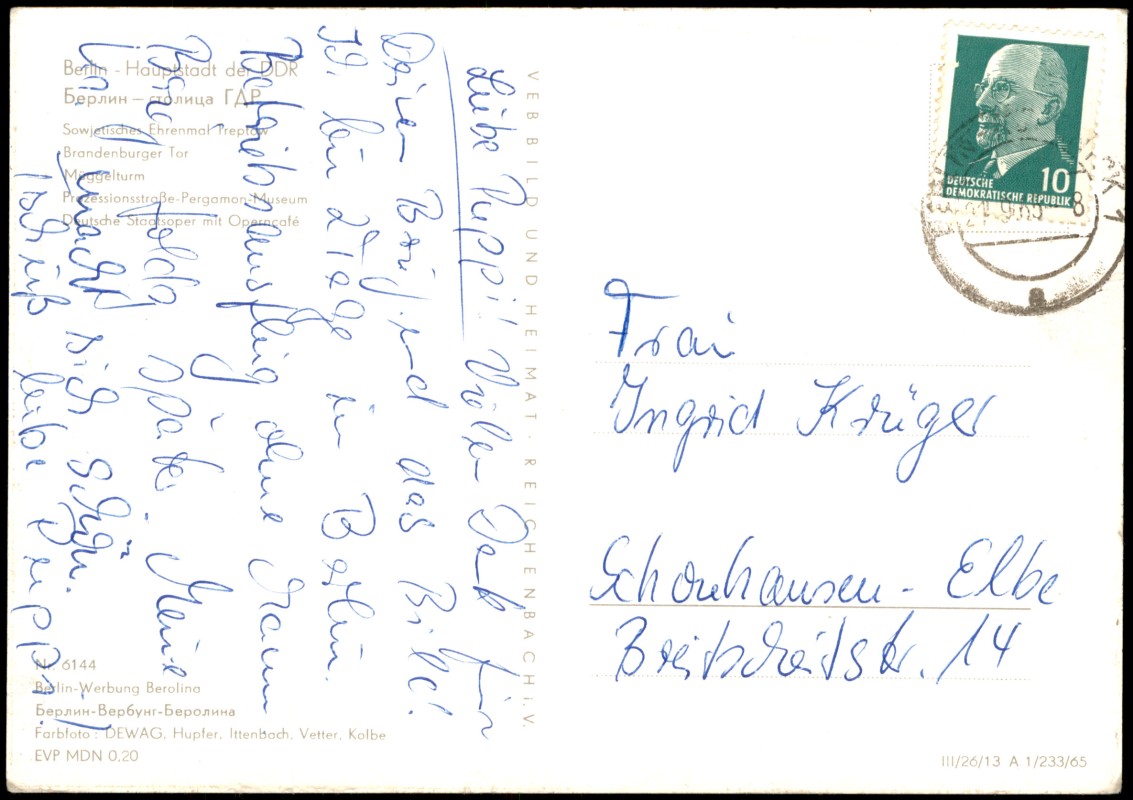 Berlin - Hauptstadt der DDR
Берлин — столица ГДР
Sowjetisches Ehrenmal Treptow
Brandenburger Tor
Müggelturm
Prozessionsstraße-Pergamon-Museum
Deutsche Staatsoper mit Operncafé
Liebe Puppi! Vielen Dank für
Deinen Brief und das Bild!
bin 2 Tage in Berlin.
Betriebsausflug ohne Mann
Brief folgt später. Meine
macht sich schön.
Gruß
VEB BILD UND HEIMAT · REICHENBACH i. V.
DEUTSCHE
DEMOKRATISCHE REPUBLIK
10
Frau
Ingrid Krüger
Schönhausen - Elbe
Breitscheidstr. 14
Nr. 6144
Berlin-Werbung Berolina
Берлин-Вербунг-Беролина
Farbfoto: DEWAG, Hupfer, Ittenbach, Vetter, Kolbe
EVP MDN 0,20
III/26/13 A 1/233/65